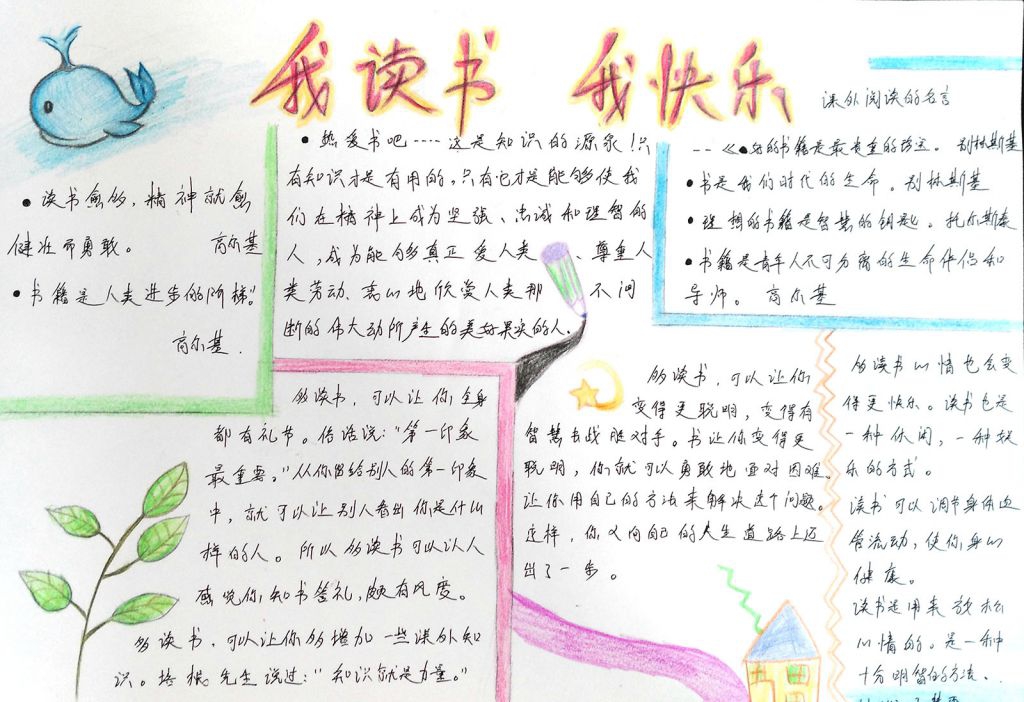 我读书 我快乐
•读书愈多,精神就愈
健壮而勇敢。 高尔基
•书籍是人类进步的阶梯。"
高尔基.
•热爱书吧----这是知识的源泉!只
有知识才是有用的,只有它才是能够使我
们在精神上成为坚强、忠诚和理智的
人,成为能够真正爱人类、尊重人
类劳动、衷心地欣赏人类那 不间
断的伟大劳动所产生的美好果实的人.
课外阅读的名言
的书籍是最贵重的珍宝。 别林斯基
•书是我们时代的生命。别林斯基
•理想的书籍是智慧的钥匙。托尔斯泰
•书籍是青年人不可分离的生命伴侣和
导师。 高尔基
多读书,可以让你全身
都有礼节。俗话说:"第一印象
最重要。"从你留给别人的第一印象
中,就可以让别人看出你是什么
样的人。所以多读书可以让人
感觉你知书答礼,颇有风度。
多读书,可以让你多增加一些课外知
识。培根先生说过:"知识就是力量。"
多读书,可以让你
变得更聪明,变得有
智慧去战胜对手。书让你变得更
聪明,你就可以勇敢地面对困难。
让你用自己的方法来解决这个问题。
这样,你又向自己的人生道路上迈
出了一步。
多读书心情也会变
得更快乐。读书也是
一种休闲,一种娱
乐的方式。
读书可以调节身体血
管流动,使你身心
健康。
读书是用来放松
心情的。是一种
十分明智的方法.